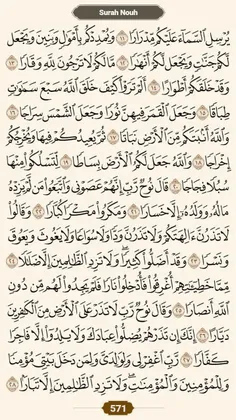 Surah Nouh
يُرْسِلِ ٱلسَّمَآءَ عَلَيْكُم مِّدْرَارًا ١١ وَيُمْدِدْكُم بِأَمْوَٰلٍ وَبَنِينَ وَيَجْعَل
لَّكُمْ جَنَّٰتٍ وَيَجْعَل لَّكُمْ أَنْهَٰرًا ١٢ مَّا لَكُمْ لَا تَرْجُونَ لِلَّهِ وَقَارًا ١٣
وَقَدْ خَلَقَكُمْ أَطْوَارًا ١٤ أَلَمْ تَرَوْا۟ كَيْفَ خَلَقَ ٱللَّهُ سَبْعَ سَمَٰوَٰتٍ
طِبَاقًا ١٥ وَجَعَلَ ٱلْقَمَرَ فِيهِنَّ نُورًا وَجَعَلَ ٱلشَّمْسَ سِرَاجًا ١٦
وَٱللَّهُ أَنۢبَتَكُم مِّنَ ٱلْأَرْضِ نَبَاتًا ١٧ ثُمَّ يُعِيدُكُمْ فِيهَا وَيُخْرِجُكُمْ
إِخْرَاجًا ١٨ وَٱللَّهُ جَعَلَ لَكُمُ ٱلْأَرْضَ بِسَاطًا ١٩ لِّتَسْلُكُوا۟ مِنْهَا
سُبُلًا فِجَاجًا ٢٠ قَالَ نُوحٌ رَّبِّ إِنَّهُمْ عَصَوْنِى وَٱتَّبَعُوا۟ مَن لَّمْ يَزِدْهُ
مَالُهُۥ وَوَلَدُهُۥٓ إِلَّا خَسَارًا ٢١ وَمَكَرُوا۟ مَكْرًا كُبَّارًا ٢٢ وَقَالُوا۟
لَا تَذَرُنَّ ءَالِهَتَكُمْ وَلَا تَذَرُنَّ وَدًّا وَلَا سُوَاعًا وَلَا يَغُوثَ وَيَعُوقَ
وَنَسْرًا ٢٣ وَقَدْ أَضَلُّوا۟ كَثِيرًا وَلَا تَزِدِ ٱلظَّٰلِمِينَ إِلَّا ضَلَٰلًا ٢٤
مِّمَّا خَطِيٓـَٰٔتِهِمْ أُغْرِقُوا۟ فَأُدْخِلُوا۟ نَارًا فَلَمْ يَجِدُوا۟ لَهُم مِّن دُونِ
ٱللَّهِ أَنصَارًا ٢٥ وَقَالَ نُوحٌ رَّبِّ لَا تَذَرْ عَلَى ٱلْأَرْضِ مِنَ ٱلْكَٰفِرِينَ
دَيَّارًا ٢٦ إِنَّكَ إِن تَذَرْهُمْ يُضِلُّوا۟ عِبَادَكَ وَلَا يَلِدُوٓا۟ إِلَّا فَاجِرًا
كَفَّارًا ٢٧ رَّبِّ ٱغْفِرْ لِى وَلِوَٰلِدَىَّ وَلِمَن دَخَلَ بَيْتِىَ مُؤْمِنًا
وَلِلْمُؤْمِنِينَ وَٱلْمُؤْمِنَٰتِ وَلَا تَزِدِ ٱلظَّٰلِمِينَ إِلَّا تَبَارًۢا ٢٨
571